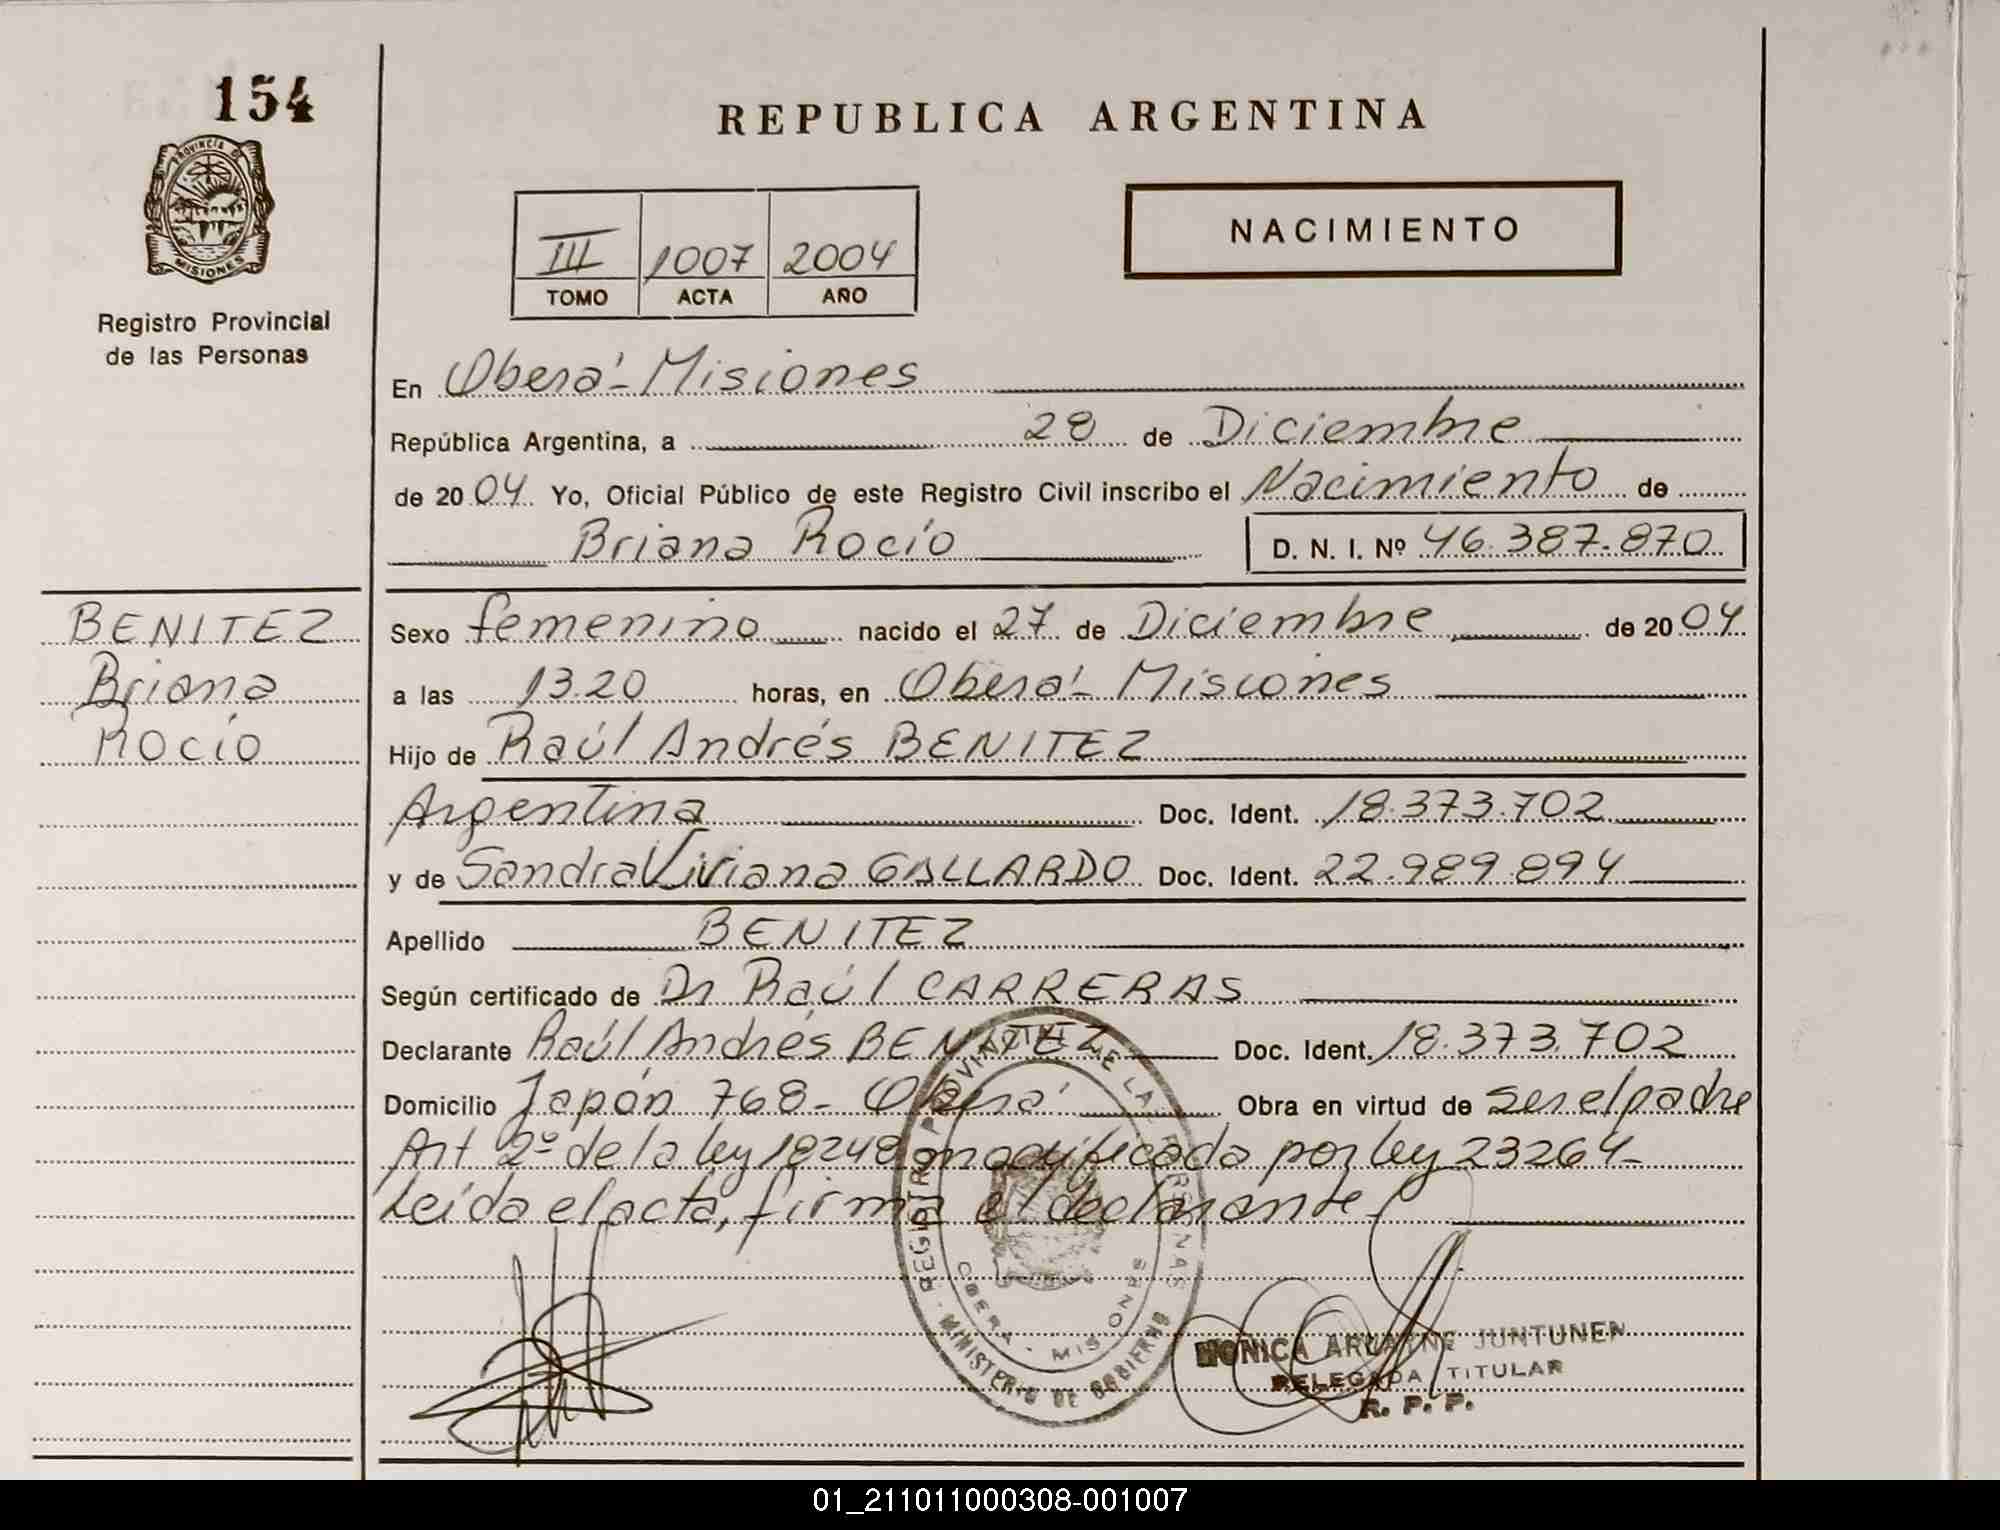 154
PROVINCIA DE
MISIONES
Registro Provincial
de las Personas
REPUBLICA ARGENTINA
III 1007 2004
TOMO ACTA AÑO
NACIMIENTO
En Oberá - Misiones
República Argentina, a 28 de Diciembre
de 2004 Yo, Oficial Público de este Registro Civil inscribo el Nacimiento de
Briana Rocío D. N. I. Nº 46.387.870
BENITEZ
Briana
Rocío
Sexo femenino nacido el 27 de Diciembre de 2004
a las 13.20 horas, en Oberá - Misiones
Hijo de Raúl Andrés BENITEZ
Argentina Doc. Ident. 18.373.702
y de Sandra Viviana GALLARDO Doc. Ident. 22.989.894
Apellido BENITEZ
Según certificado de Dr Raúl CARRERAS
Declarante Raúl Andrés BENITEZ Doc. Ident. 18.373.702
Domicilio Japón 768 - Oberá Obra en virtud de ser el padre
Art 2º de la ley 18248 modificada por ley 23264-
Leída el acta, firma el declarante
REGISTRO PROVINCIAL DE LAS PERSONAS
OBERA - MISIONES
MINISTERIO DE GOBIERNO
MONICA ARLAINE JUNTUNEN
DELEGADA TITULAR
R. P. P.
01_211011000308-001007